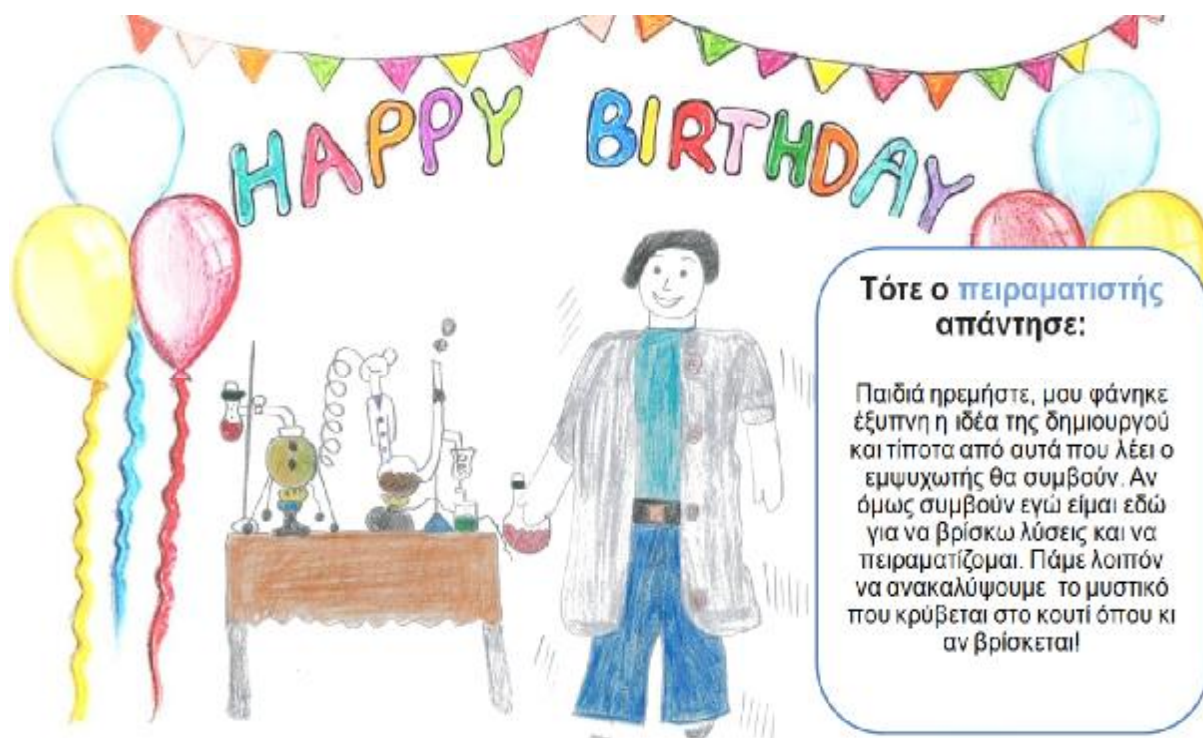 HAPPY BIRTHDAY
Τότε ο πειραματιστής
απάντησε:
Παιδιά ηρεμήστε, μου φάνηκε
έξυπνη η ιδέα της δημιουργού
και τίποτα από αυτά που λέει ο
εμψυχωτής θα συμβούν. Αν
όμως συμβούν εγώ είμαι εδώ
για να βρίσκω λύσεις και να
πειραματίζομαι. Πάμε λοιπόν
να ανακαλύψουμε το μυστικό
που κρύβεται στο κουτί όπου κι
αν βρίσκεται!